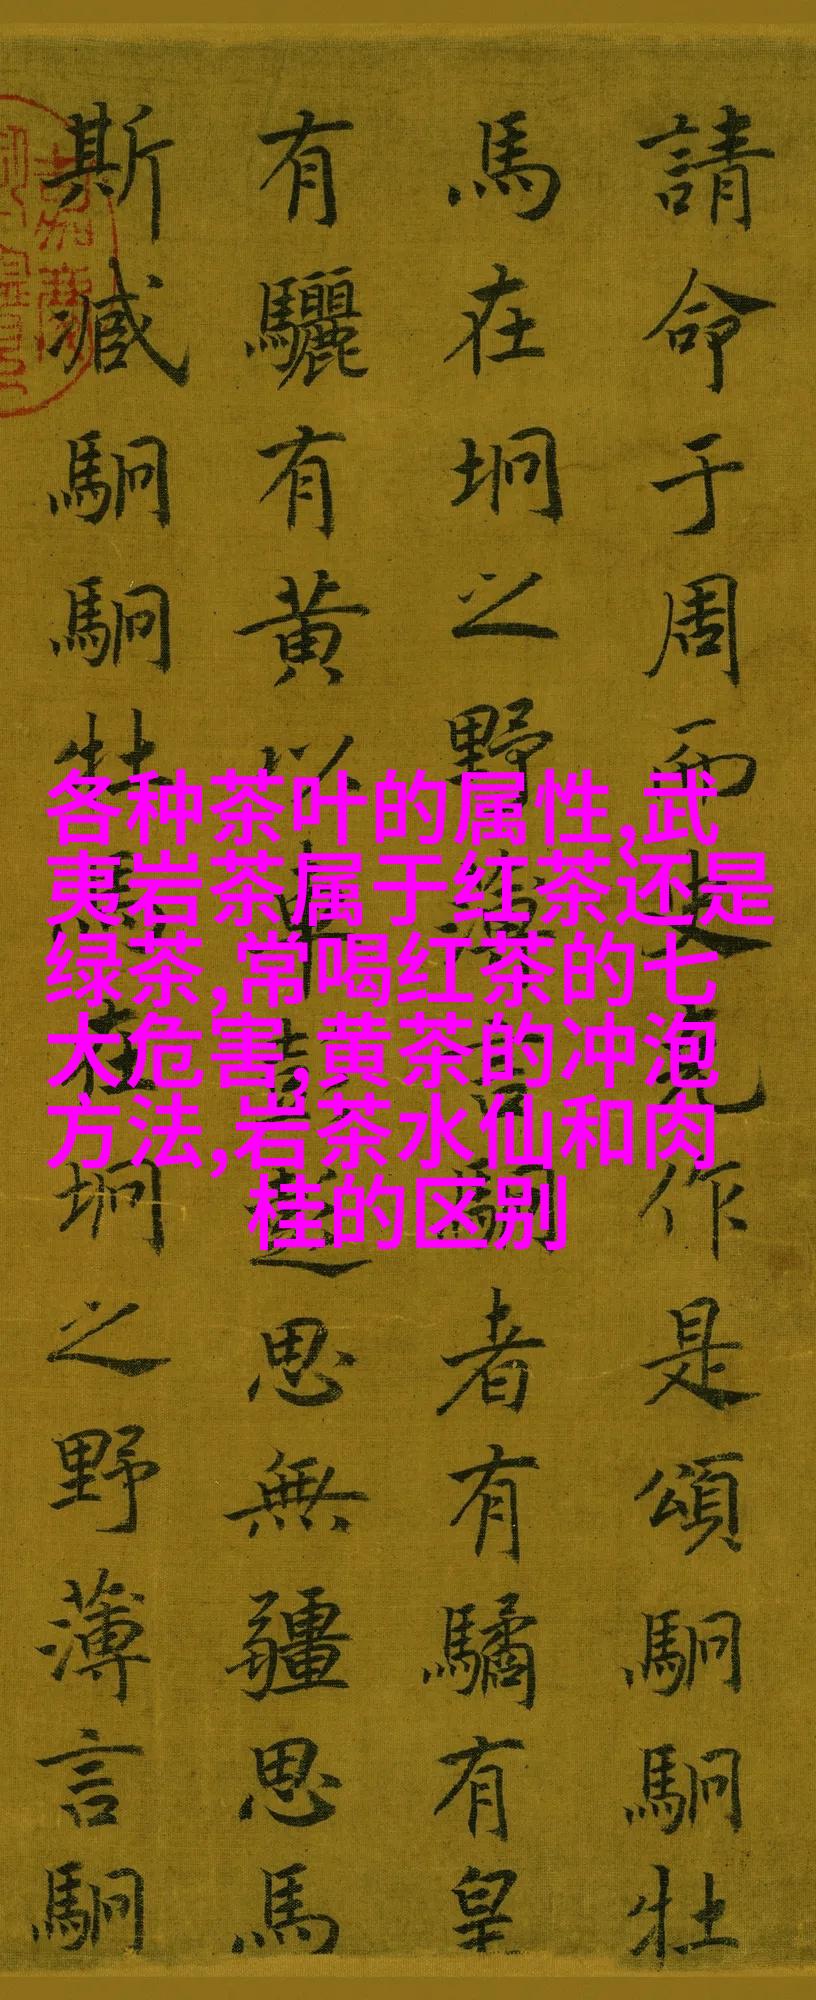 請命于周而史克作是頌駉駉牡
馬在坰之野薄言駉者有驈有皇
有驪有黃以車彭彭思無疆思馬
斯臧駉駉牡馬在坰之野薄言駉
各种茶叶的属性,武
夷岩茶属于红茶还是
绿茶,常喝红茶的七
大危害,黄茶的冲泡
方法,岩茶水仙和肉
桂的区别